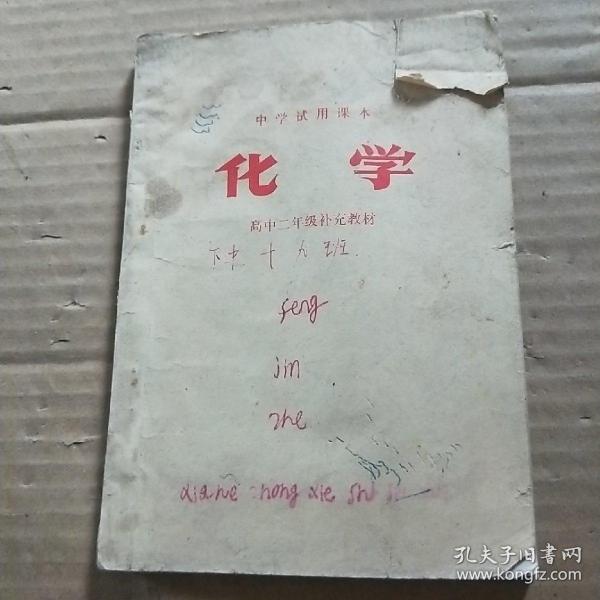 中学试用课本
化学
高中二年级补充教材
十九班
feng
jin
zhe
xie shi
孔夫子旧书网
www.kongfz.com